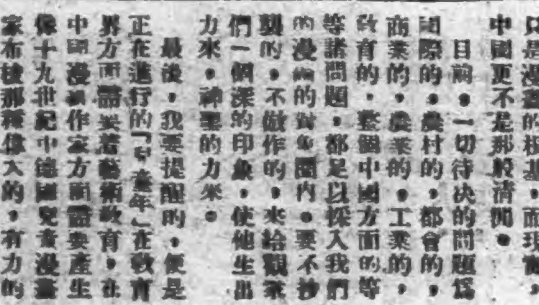 只是漫畫的根基，而現實，
中國更不是那般清閒。
目前，一切待决的問題爲
國際的，農村的，都會的，
商業的，農業的，工業的，
敎育的，整個中國方面的等
等諸問題，都足以採入我們
的漫畫的對象圈内。要不抄
襲的，不倣作的，來給觀衆
們一個深的印象，使他生出
力來，神聖的力來。
最後，我要提醒的，便是
正在進行的「兒童年」在敎育
界方面需要着藝術敎育，在
中國漫畫作家方面需要產生
像十九世紀中德國兒童漫畫
家布棱那種偉大的，有力的